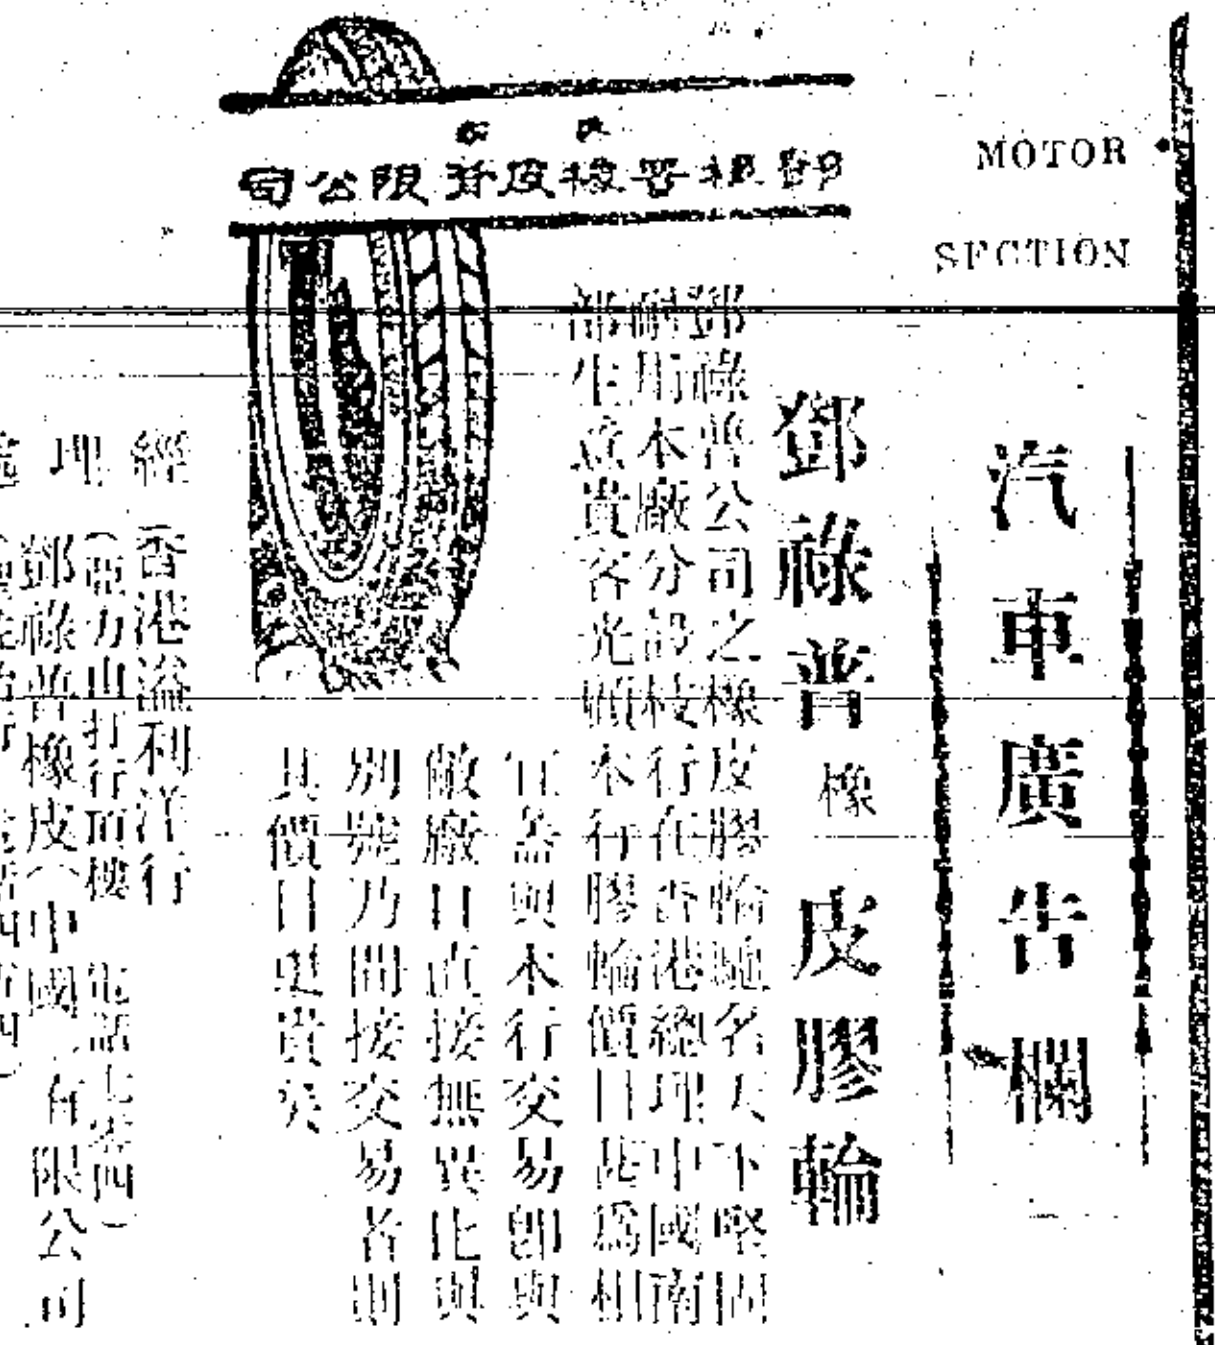 MOTOR
SECTION
汽車廣告欄
鄧祿普橡皮膠輪
鄧祿普公司之橡皮膠輪馳名天下堅固
耐用本廠分設枝行在香港總理中國南
部生意貴客光顧本行膠輪價目甚爲相
宜蓋與本行交易卽與
敝廠日直接無異比與
別號乃間接交易者則
其價目更貴矣
司公限 皮橡 祿鄧
經理
香港溢利洋行
(亞力山打行頂樓 電話七零四)
鄧祿普橡皮(中國)有限公司